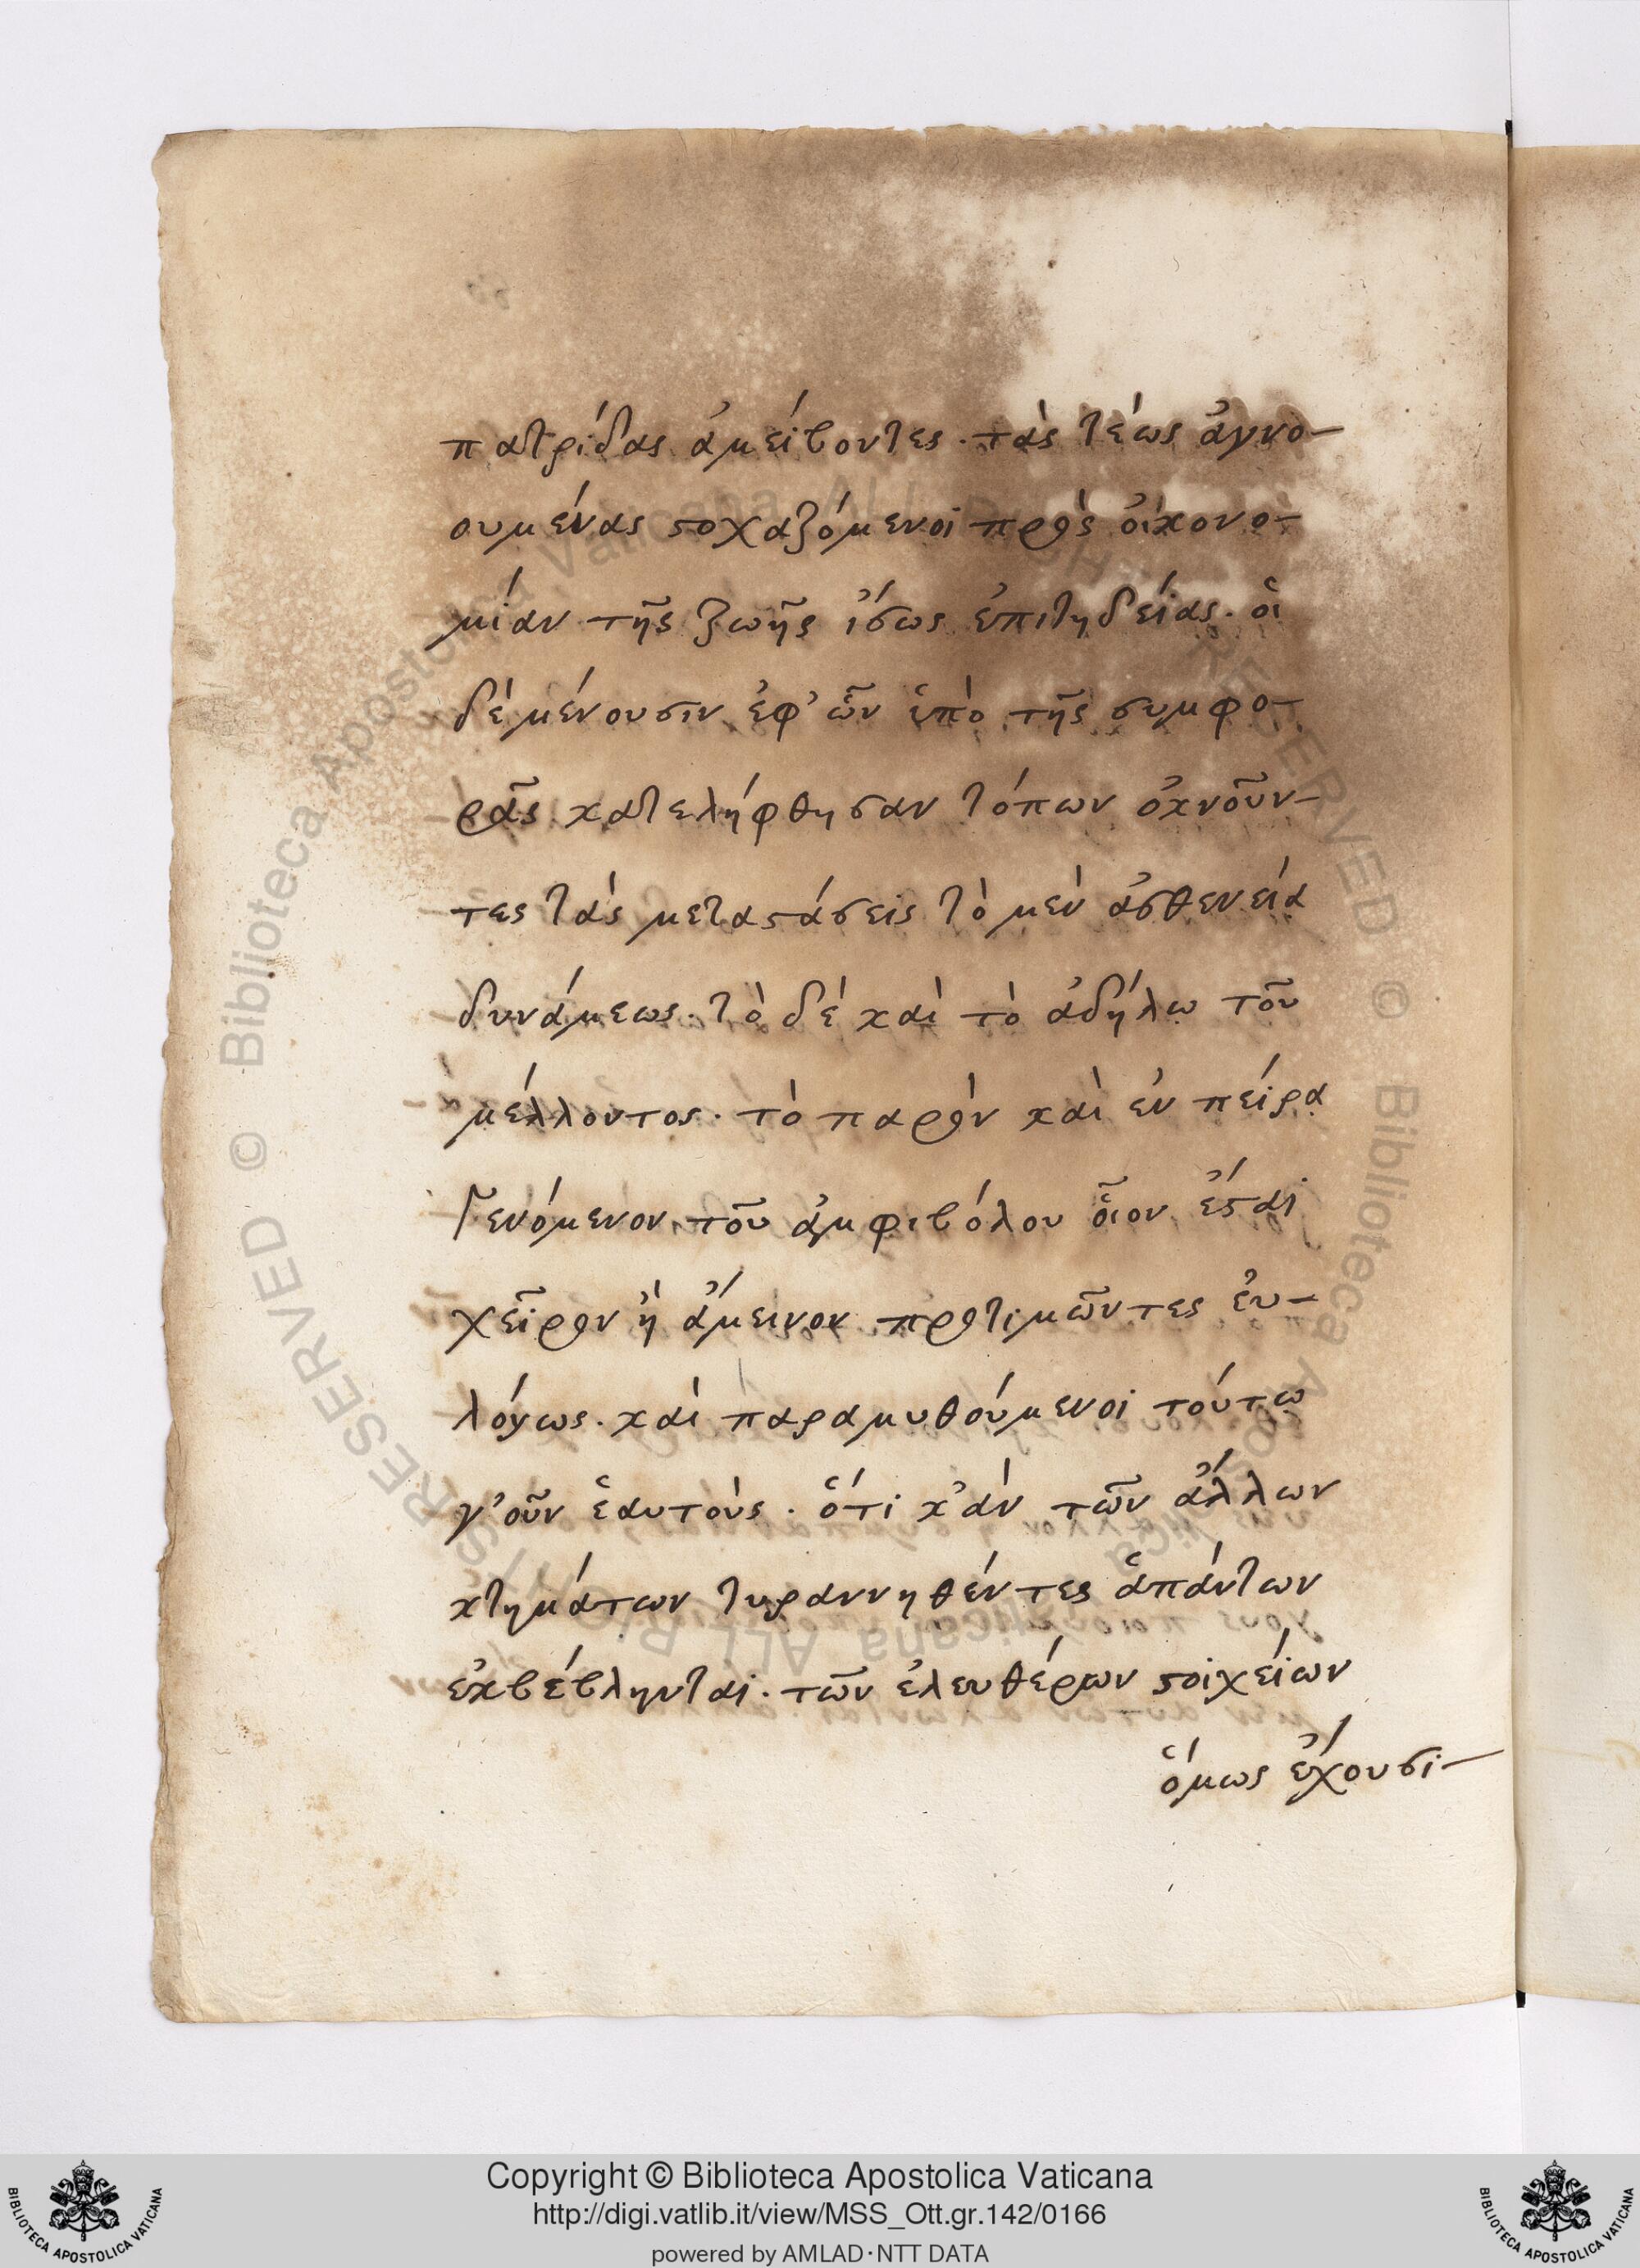 πατρίδας ἀμείβοντες· τὰς τέως ἀγνο-
ουμένας στοχαζόμενοι πρὸς οἰκονο-
μίαν τῆς ζωῆς ἴσως ἐπιτηδείας· οἱ
δὲ μένουσιν ἐφ' ὧν ὑπὸ τῆς συμφο-
ρᾶς κατελήφθησαν τόπων ὀκνοῦν-
τες τὰς μεταστάσεις τὸ μὲν ἀσθενεία
δυνάμεως· τὸ δὲ καὶ τὸ ἀδήλω τοῦ
μέλλοντος· τὸ παρὸν καὶ ἐν πείρα
Γενόμενον τοῦ ἀμφιβόλου οἷον ἔσται
χεῖρον ἢ ἄμεινον προτιμῶντες ἐυ-
λόγως· καὶ παραμυθούμενοι τούτω
γ' οὖν ἑαυτοὺς· ὅτι κ' ἀν τῶν ἄλλων
κτημάτων τυραννηθέντες ἁπάντων
ἐκβέβληνται· τῶν ἐλευθέρων στοιχείων
ὅμως ἔχουσι-
Copyright © Biblioteca Apostolica Vaticana
http://digi.vatlib.it/view/MSS_Ott.gr.142/0166
powered by AMLAD·NTT DATA
BIBLIOTECA APOSTOLICA VATICANA
BIBLIOTECA APOSTOLICA VATICANA
© Biblioteca Apostolica Vaticana ALL RIGHTS RESERVED © Biblioteca Apostolica Vaticana ALL RIGHTS RESERVED